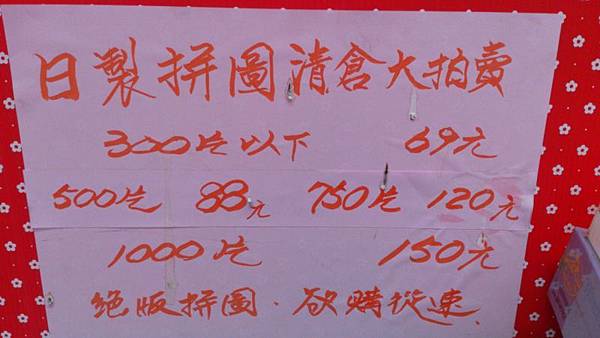 日製拼圖清倉大拍賣
300片以下 69元
500片 88元 750片 120元
1000片 150元
絕版拼圖.欲購從速.